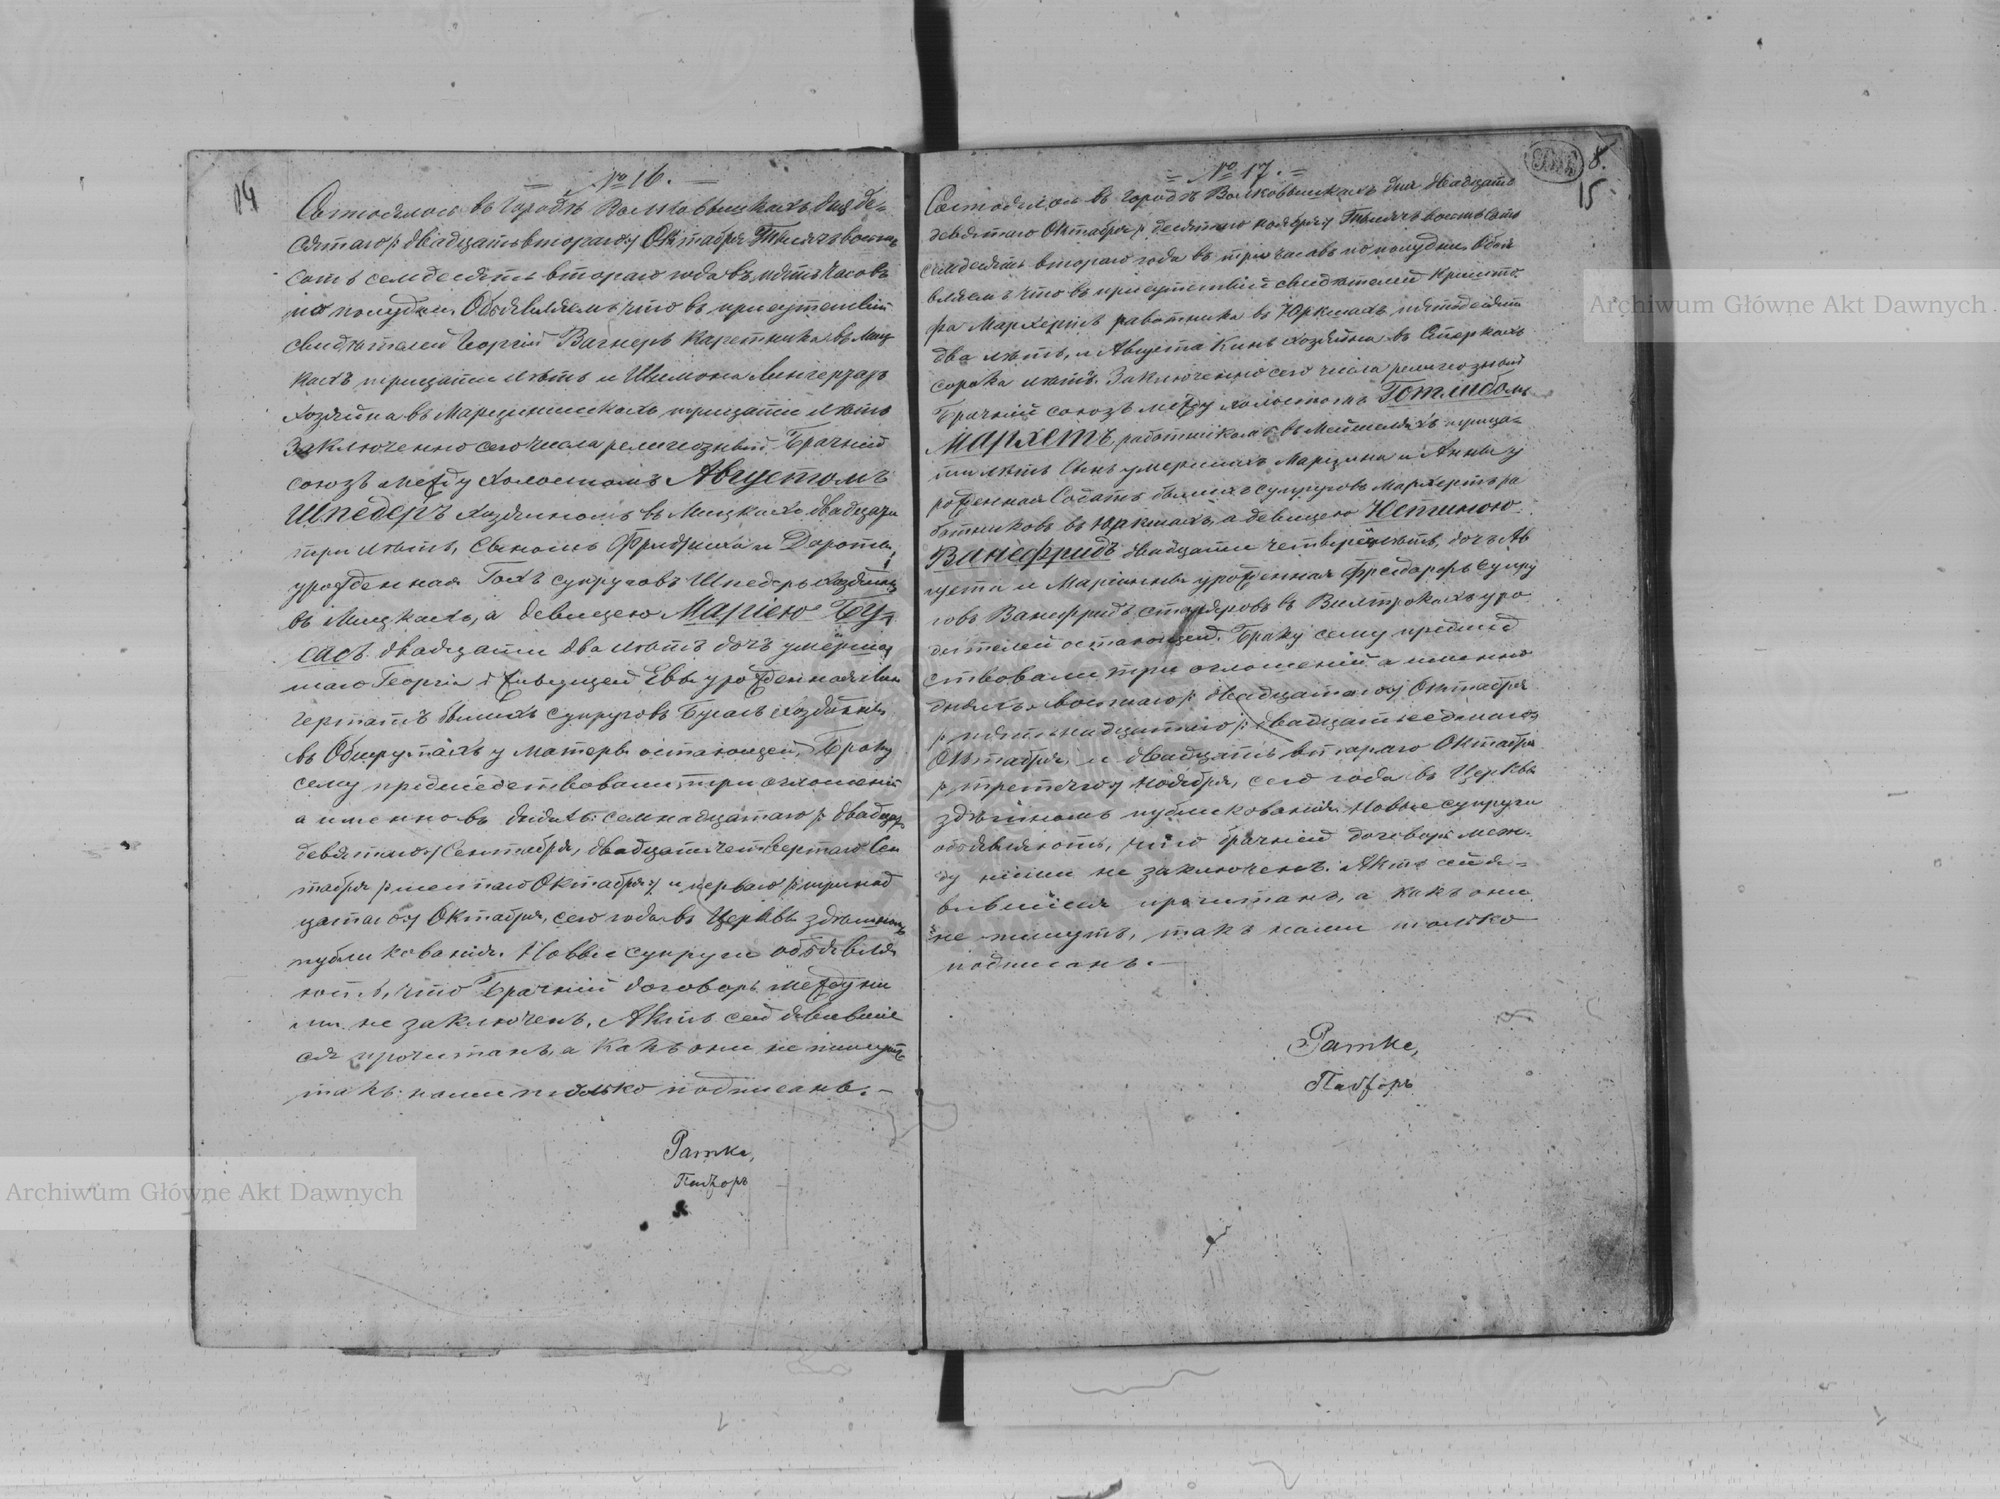 14
№ 16.
Состоялось въ Городѣ Волковышкахъ дня де-
сятаго /: двадцать втораго :/ Октября Тысяча восемь
сотъ семдесять втораго года въ пять часовъ
по полудни. Объявляемъ что въ присутствіи
свидѣтелей Георгій Вагнеръ каретника въ
кахъ тридцати лѣтъ и Шимона Лингертатъ
хозяйна въ тридцати лѣтъ
Заключенно сего числа религіозный Брачный
союзъ между холостымъ Августомъ
Шпедеръ хозяиномъ въ двадцати
три лѣтъ, сыномъ Фридриха и Дороты
урожденная Гохъ супруговъ Шпедеръ хозяйны
въ а девицею Маріею Бу-
сасъ двадцати два лѣтъ дочъ умерша
шаго Георгія и живущей Евы урожденная Лин
гертатъ бывшихъ супруговъ Бусасъ хозяйны
въ у матеры остающей, Браку
сему предшедствовали три оглошеній
а именно въ дняхъ: семнадцатаго /: двадцат
девятаго :/ Сентября, двадцать четвертаго Сен
тября /: шестаго Октября :/ и перваго /: тринад
цатаго :/ Октября, сего года въ Церквы здѣшномъ
публикованія. Новые супруги объявля
ютъ, что Брачный договоръ между ни
ми не заключенъ. Актъ сей явившіе
ся прочитанъ, а какъ они не пишутъ
такъ нами только подписанъ. —
Ратке,
Пасторъ
8.
15
= № 17. =
Состоялось въ Городѣ Волковышкахъ дня двадцать
девятаго Октября /: десятаго ноября :/ Тысяча восемь сотъ
семдесять втораго года въ три часовъ по полудни. Объя
вляемъ что въ присутствіи свидѣтелей Кристо
фа Мархертъ работника въ Юркшахъ пятдесятъ
два лѣтъ, и Августа Кинъ хозяйна въ
сорока лѣтъ. Заключенно сего числа религіозный
Брачный союзъ между холостымъ Готлибомъ
Мархетъ, работникомъ въ тридца-
ти лѣтъ сынъ умершихъ и Анны у
рожденная бывшихъ супруговъ Мархертъ ра
ботниковъ въ Юркшахъ, а девицею
Винефридъ двадцати четверы лѣтъ, дочъ Ав
густа и Маріанны урожденная супру
говъ Винефридъ въ у ро
дителей остающей. Браку сему предшед
ствовали три оглошеній а именно
дняхъ: восмаго /: двадцатаго :/ Октября
/: двадцать седмаго :/
Октября и двадцать втораго Октября
/: третьяго :/ Ноября, сего года въ Церквы
здѣшномъ публикованія. Новые супруги
объявляютъ, что брачный договоръ меж-
ду ними не заключенъ. Актъ сей я-
вившіеся прочитанъ, а какъ они
не пишутъ, такъ нами только
подписанъ. —
Ратке,
Пасторъ
Archiwum Główne Akt Dawnych
Archiwum Główne Akt Dawnych